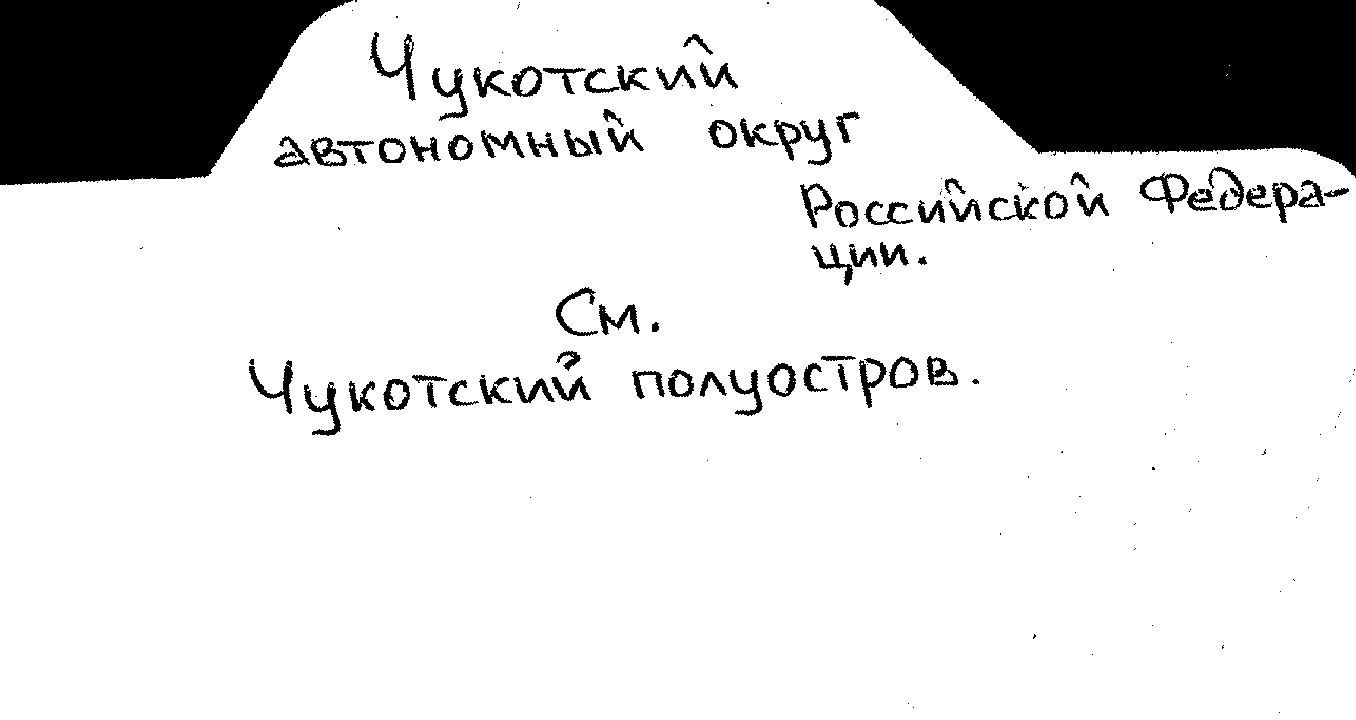 Чукотский
автономный округ
Российской Федера-
ции.
См.
Чукотский полуостров.